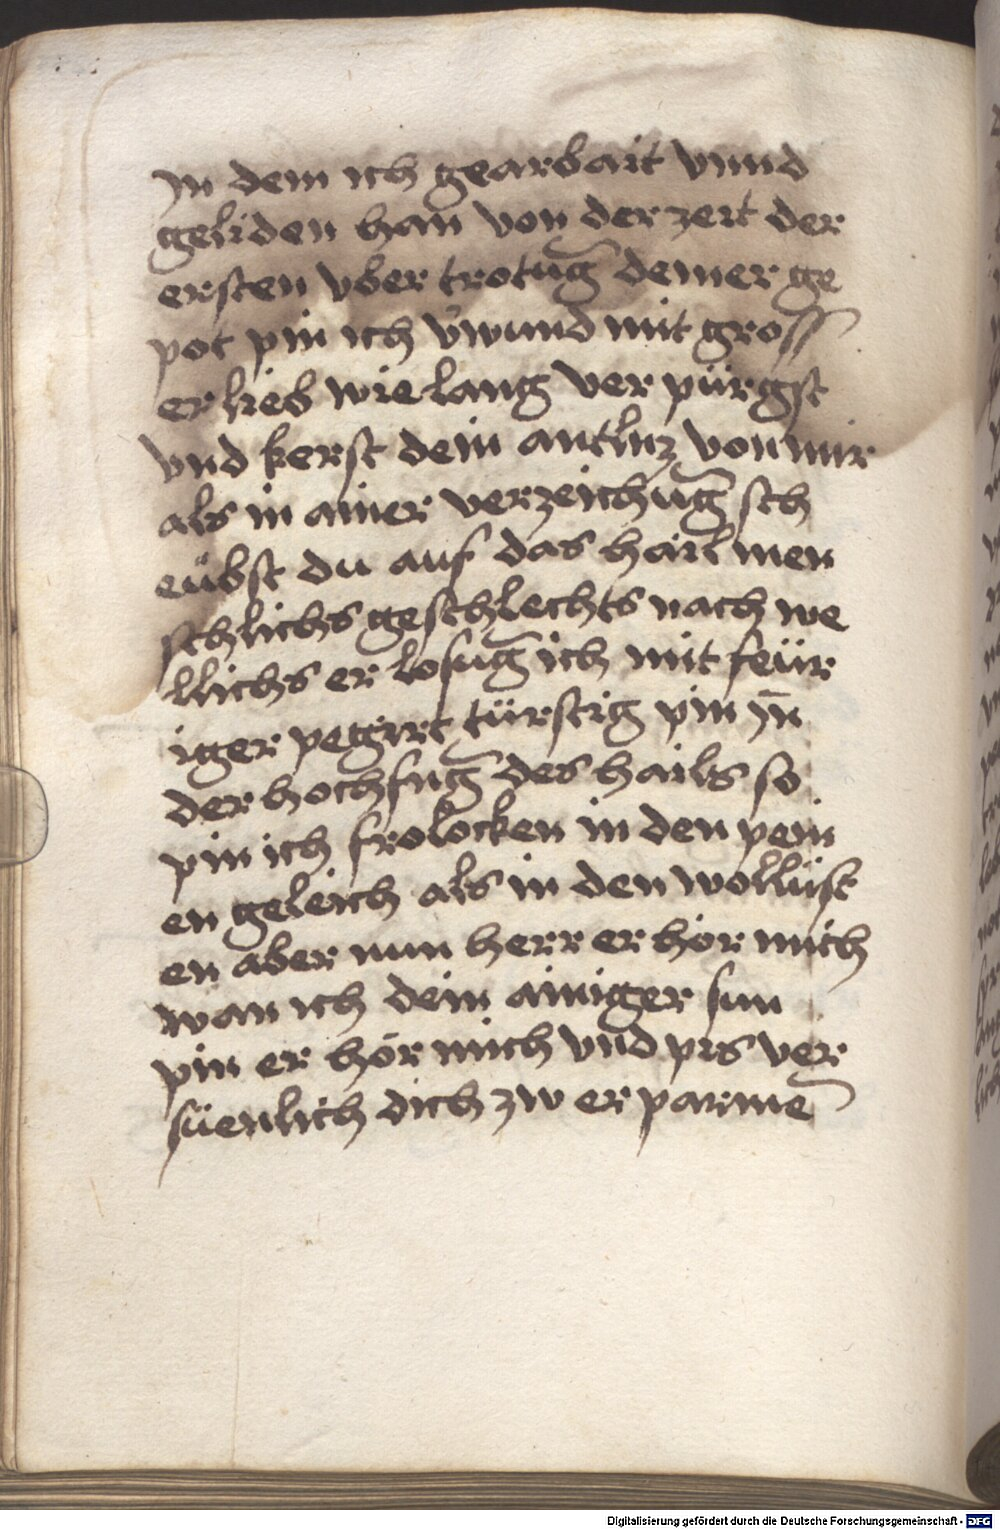 in dem ich gearbait vnnd
geliden han von der zeit der
ersten vber trotūg deiner ge
pot pin ich v̄wund mit gross
er lieb wie lang ver pürgst
vnd kerst dein antluz von mir
als in ainer verzeichūg sch
eübst du auf das hail men
schlichs geschlechts nach we
llichs er losūg ich mit feür
iger pegirt türstig pin yn̄
der hochfūg des hails so
pin ich frolocken in den pein
en geleich als in den wollüst
en aber nun herr er hör mich
wan ich dein ainiger sun
pin er hör mich vnd pis ver
süenlich dich zw er parmē
Digitalisierung gefördert durch die Deutsche Forschungsgemeinschaft - DFG